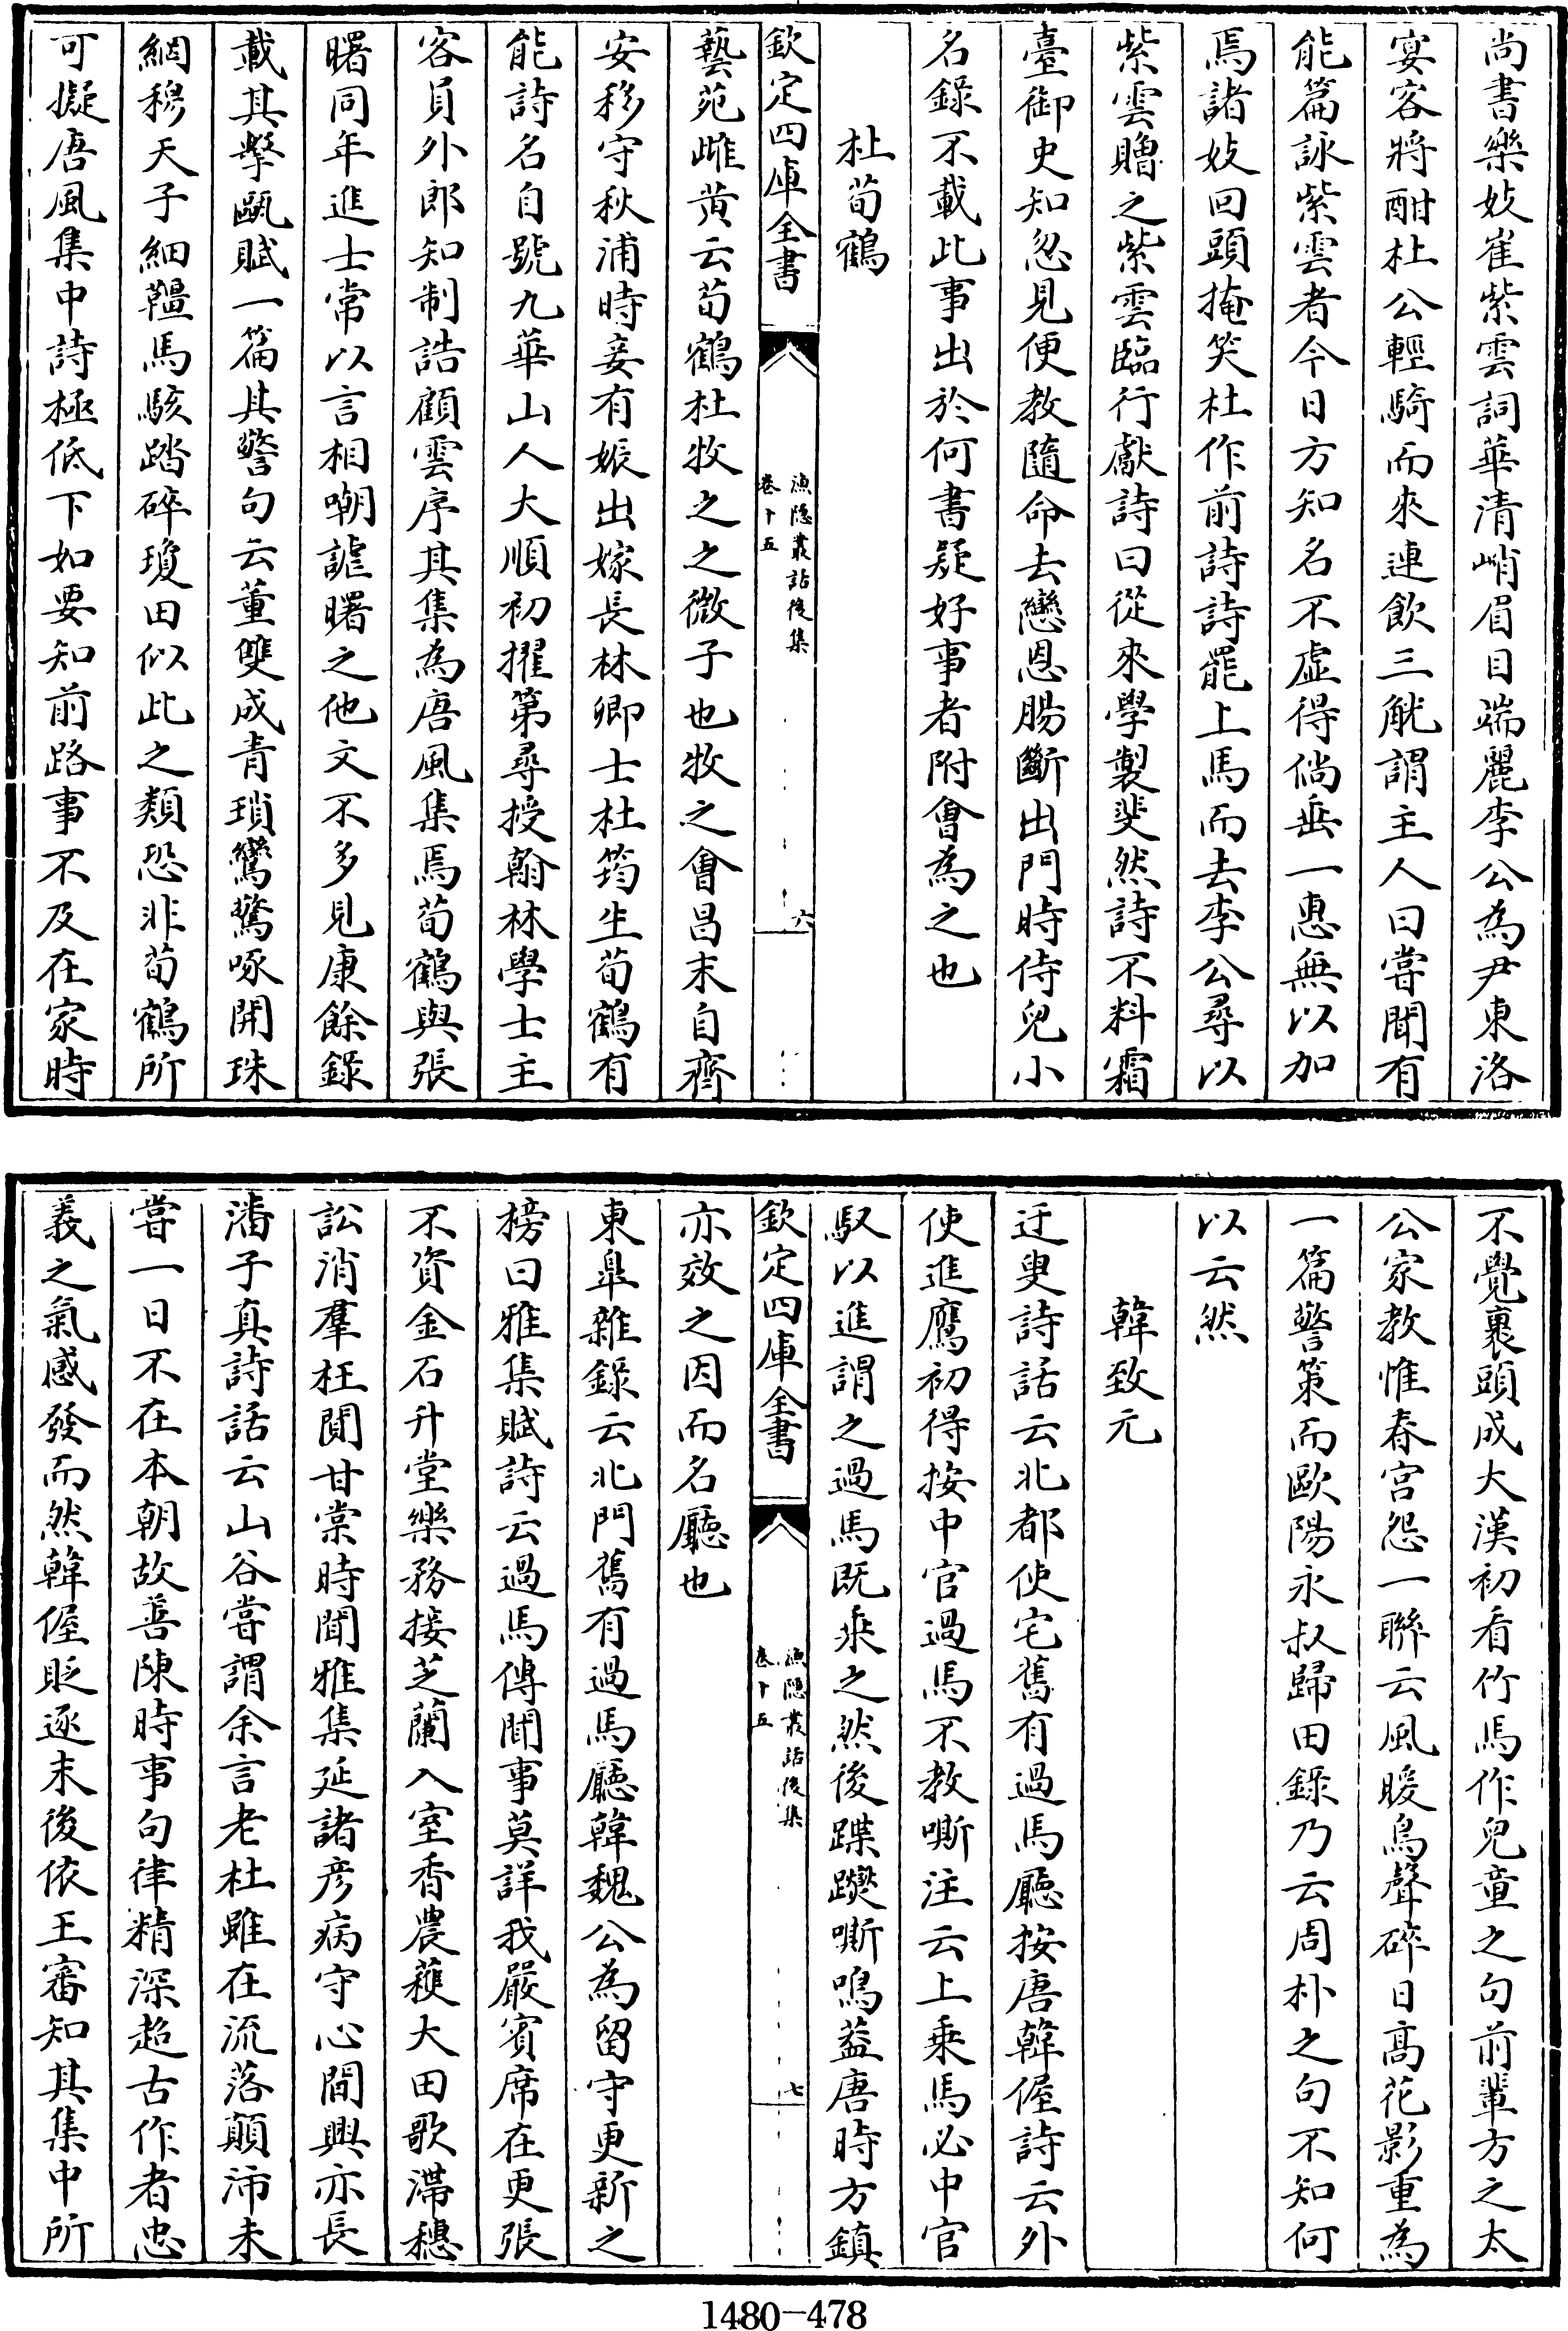 尚書樂妓崔紫雲詞華清峭眉目端麗李公為尹東洛
宴客將酣杜公輕騎而來連飲三觥謂主人曰嘗聞有
能篇詠紫雲者今日方知名不虛得倘垂一惠無以加
焉諸妓回頭掩笑杜作前詩詩罷上馬而去李公尋以
紫雲贈之紫雲臨行獻詩曰從來學製斐然詩不料霜
臺御史知忽見便教隨命去戀恩腸斷出門時侍兒小
名錄不載此事出於何書疑好事者附會為之也
杜荀鶴
欽定四庫全書
漁隱叢話後集
卷十五
六
藝苑雌黄云荀鶴杜牧之之微子也牧之會昌末自齊
安移守秋浦時妾有娠出嫁長林鄉士杜筠生荀鶴有
能詩名自號九華山人大順初擢第尋授翰林學士主
客員外郎知制誥顧雲序其集為唐風集焉荀鶴與張
曙同年進士常以言相嘲謔曙之他文不多見康餘錄
載其擊甌賦一篇其警句云董雙成青瑣鸞驚啄開珠
網穆天子細韁馬駭踏碎瓊田似此之類恐非荀鶴所
可擬唐風集中詩極低下如要知前路事不及在家時
不覺裹頭成大漢初看竹馬作兒童之句前輩方之太
公家教惟春宮怨一聯云風暖鳥聲碎日高花影重為
一篇警策而歐陽永叔歸田錄乃云周朴之句不知何
以云然
韓致元
迂叟詩話云北都使宅舊有過馬廳按唐韓偓詩云外
使進鷹初得按中官過馬不教嘶注云上乘馬必中官
馭以進謂之過馬既乘之然後蹀躞嘶鳴葢唐時方鎮
欽定四庫全書
漁隱叢話後集
卷十五
七
亦效之因而名廳也
東臯雜錄云北門舊有過馬廳韓魏公為留守更新之
榜曰雅集賦詩云過馬傳聞事莫詳我嚴賓席在更張
不資金石升堂樂務接芝蘭入室香農蓺大田歌滯穗
訟消羣枉聞甘棠時聞雅集延諸彥病守心閒興亦長
潘子真詩話云山谷嘗謂余言老杜雖在流落顛沛未
嘗一日不在本朝故善陳時事句律精深超古作者忠
義之氣感發而然韓偓貶逐末後依王審知其集中所
1480-478